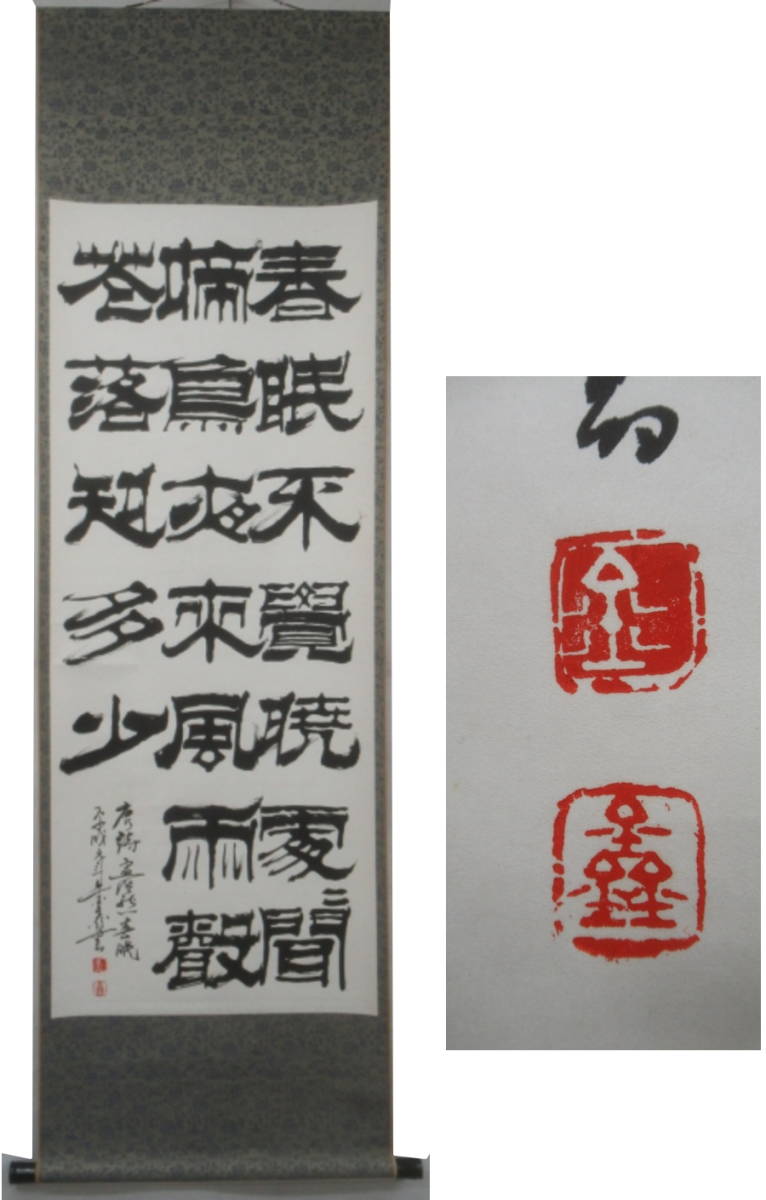 春眠不覺曉處〻聞
啼鳥夜來風雨聲
花落知多少
唐詩孟浩然春眠
金
鑫